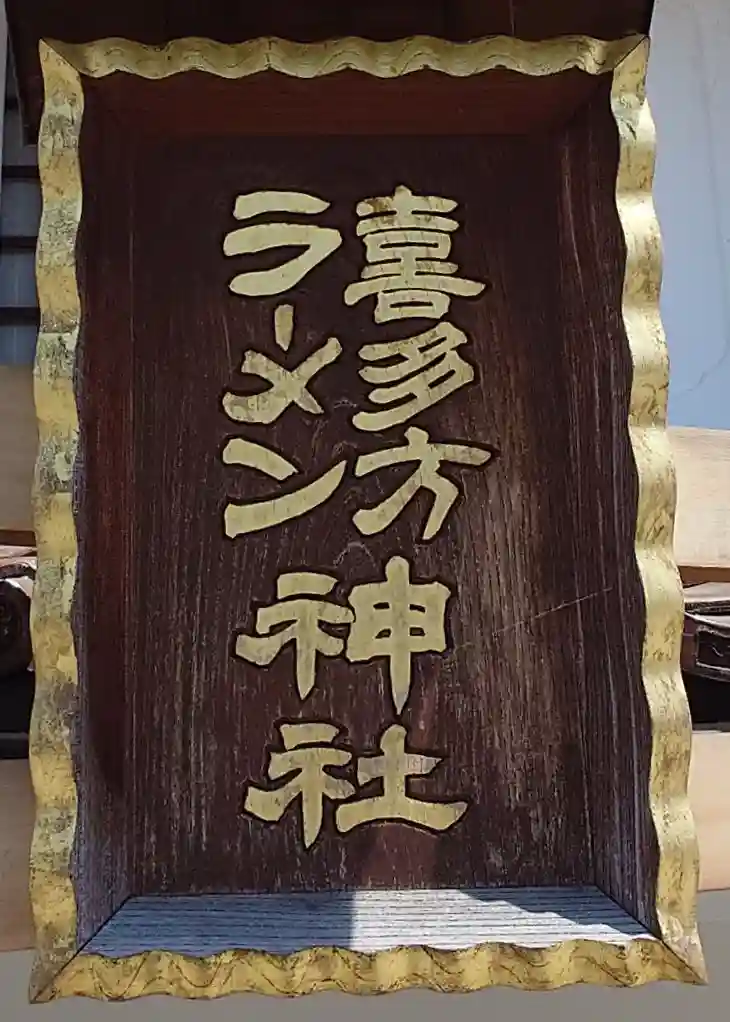 喜多方
ラーメン
神社